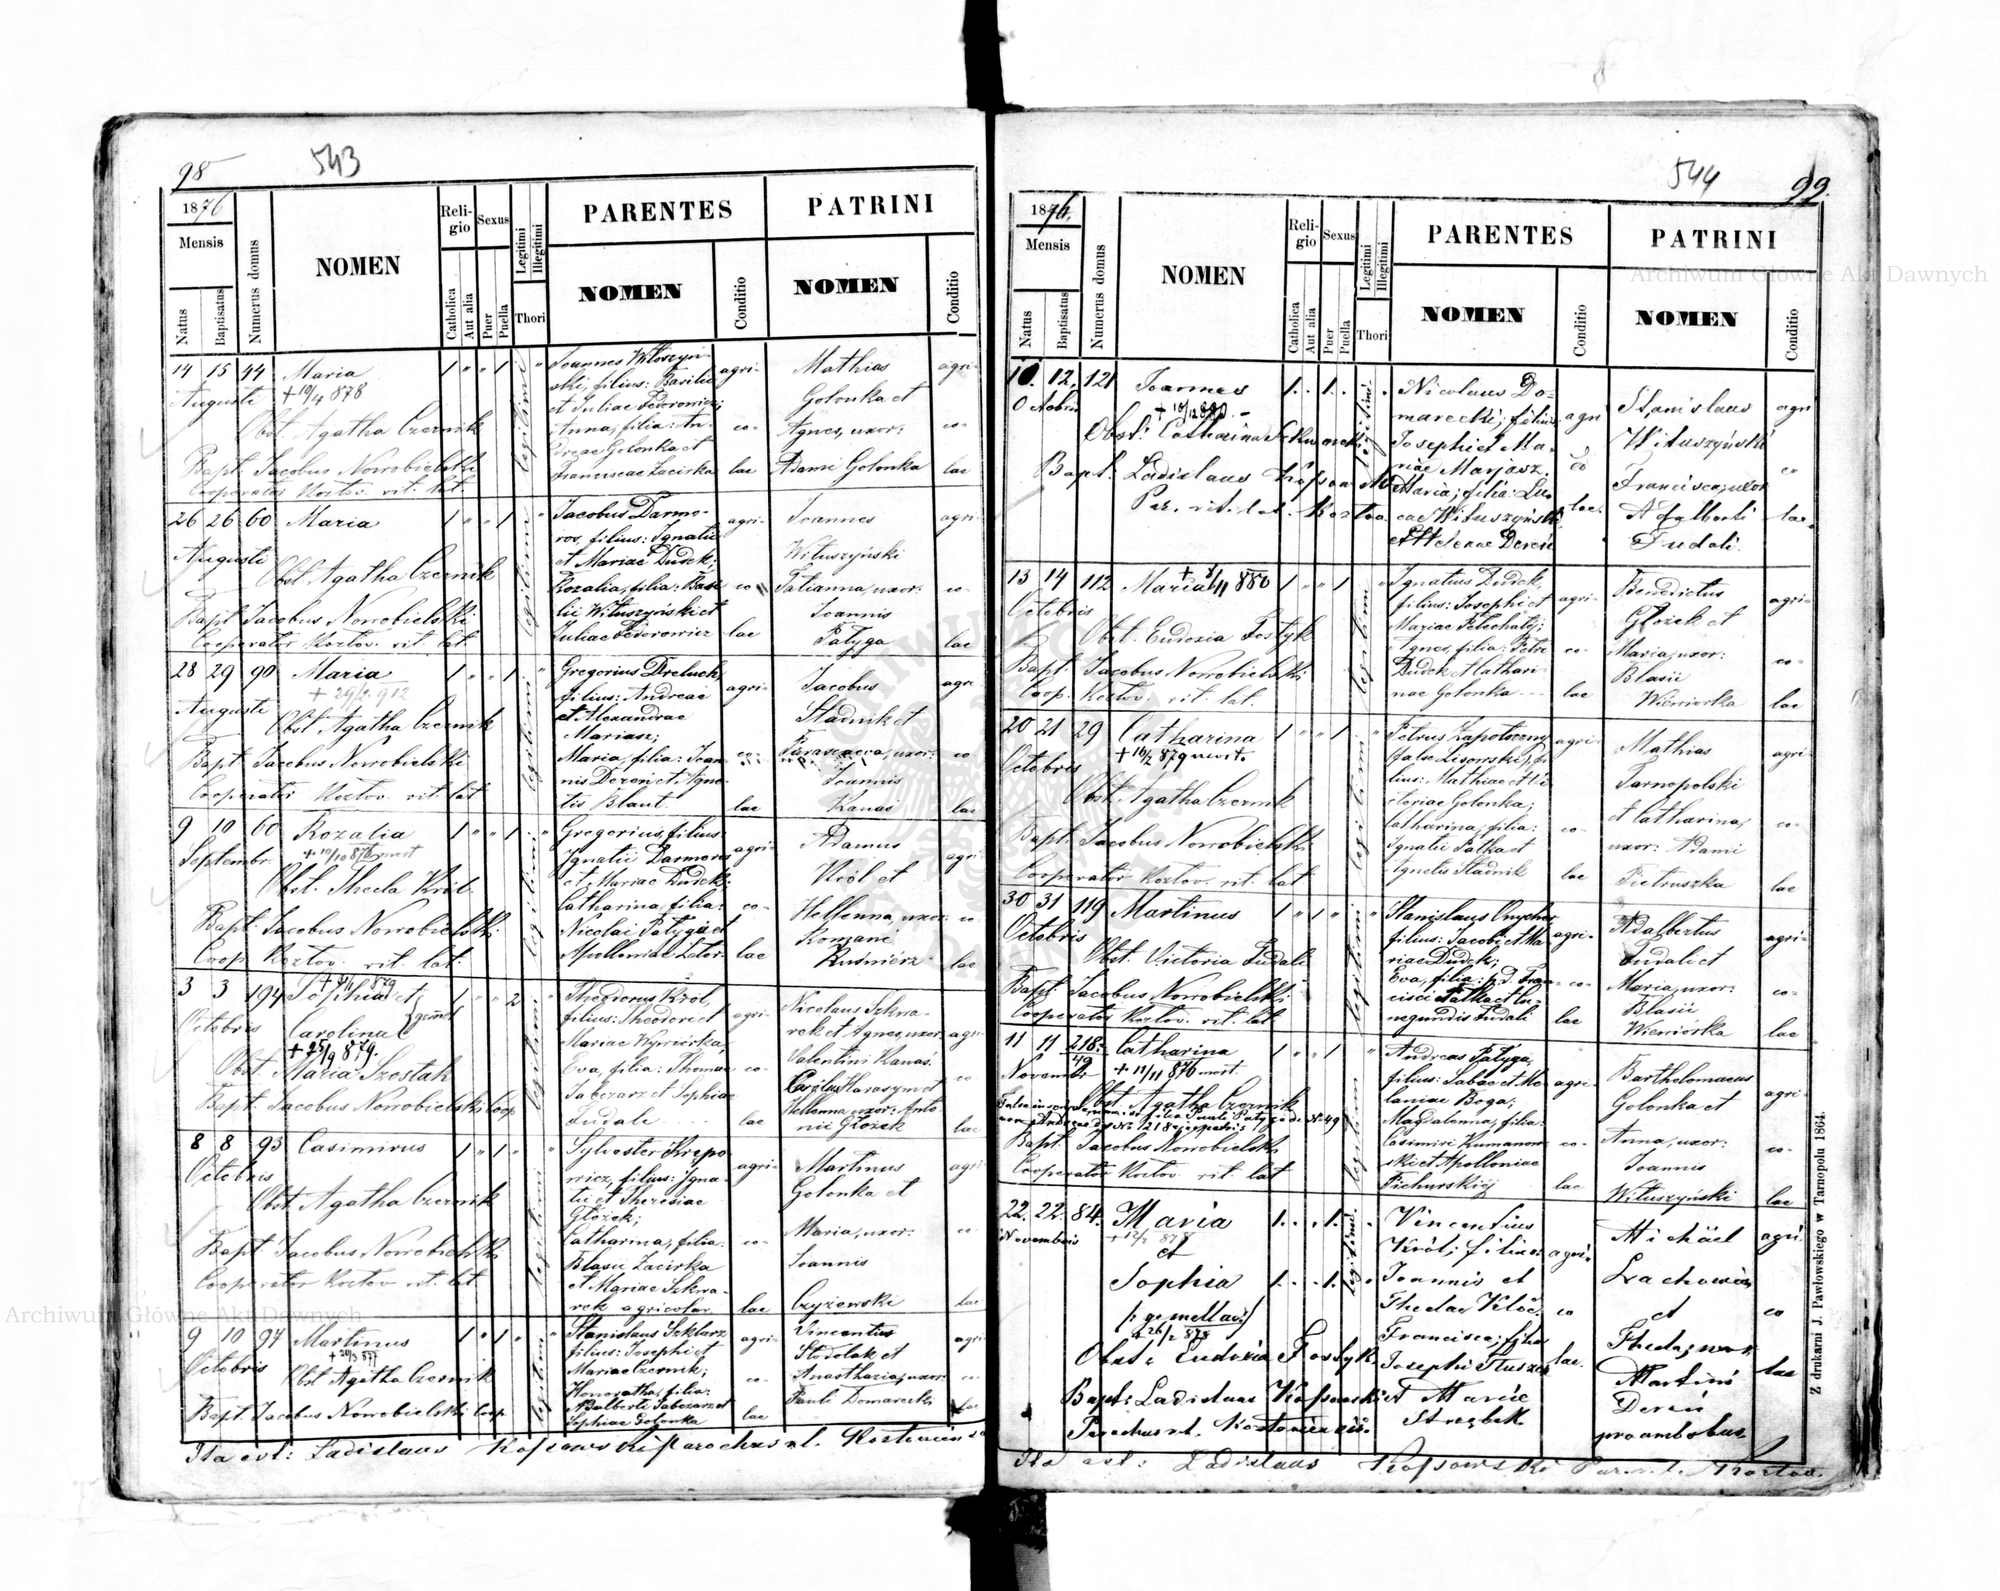 98
543
1876
Mensis
Natus
Baptisatus
Numerus domus
NOMEN
Religio
Catholica
Aut alia
Sexus
Puer
Puella
Legitimi
Illegitimi
Thori
PARENTES
NOMEN
Conditio
PATRINI
NOMEN
Conditio
14 15 44 Maria 1 " " 1 "
+ 19/4 878
Augusti
Obst. Agatha Czernik
Bapt. Jacobus Nowobielski
Cooperator Kozłov. rit. lat.
legitimi
Joannes Wituszyń-
ski, filius: Basilii
et Juliae Fedorowicz;
Anna, filia: An-
dreae Golonka et
Franciscae Zacirka
agri-
co-
lae
Mathias
Golonka et
Agnes, uxor:
Adami Golonka
agri-
co-
lae
26 26 60 Maria 1 " " 1 "
Augusti
Obst. Agatha Czernik
Bapt. Jacobus Nowobielski
Cooperator Kozłov. rit. lat.
legitimi
Jacobus Darmo-
ros, filius: Ignatii
et Mariae Dudek;
Rozalia, filia: Basi-
lii Wituszyński et
Juliae Fedorowicz
agri-
co-
lae
Joannes
Wituszyński
Tatianna, uxor:
Joannis
Patyga
agri-
co-
lae
28 29 90 Maria 1 " " 1 "
Augusti
Obst. Agatha Czernik
Bapt. Jacobus Nowobielski
Cooperator Kozłov. rit. lat.
legitimi
Gregorius Dreluch,
filius: Andreae
et Alexandrae
Mariasz;
Maria, filia: Joan-
nis Dereń et Agne-
tis Blaut.
agri-
co-
lae
Jacobus
Stadnik et
Parascaeva, uxor:
Joannis
Kanas
agri-
co-
lae
9 10 60 Rozalia 1 " " 1 "
+ 10/10 876 mort
Septembr.
Obst. Thecla Król.
Bapt. Jacobus Nowobielski
Coop. Kozłov. rit. lat.
legitimi
Gregorius, filius:
Ignatii Darmoros
et Mariae Dudek;
Catharina, filia:
Nicolai Patyga et
Apolloniae Zator.
agri-
co-
lae
Adamus
Król et
Hellenna, uxor:
Romani
Kuśnierz
agri-
co-
lae
3 3 194 Sophia et 1 " " 2 "
Carolina gemel
+ 25/9 879.
Octobris
Obst. Maria Szostak
Bapt. Jacobus Nowobielski Coop
legitimi
Theodorus Król,
filius: Theodori et
Mariae Wywiórka,
Eva, filia: Thomae
Tabczarz et Sophiae
Fudali
agri-
co-
lae
Nicolaus Szkwa-
rek et Agnes, uxor:
Valentini Kanas.
Harasym et
Hellenna, uxor: Anto-
nii Głożek
agri-
co
lae
8 8 93 Casimirus 1 " 1 " "
Octobris
Obst. Agatha Czernik
Bapt. Jacobus Nowobielski
Cooperator Kozłov. rit. lat.
legitimi
Sylvester Krypo-
wicz, filius: Igna-
tii et Theresiae
Głożek;
Catharina, filia:
Blasii Zacirka
et Mariae Szkwa-
rek agricolar.
agri-
co-
lae
Martinus
Golonka et
Maria, uxor:
Joannis
Czyżewski
agri-
co-
lae
9 10 97 Martinus 1 " 1 " "
+ 20/3 877
Octobris
Obst. Agatha Czernik
Bapt. Jacobus Nowobielski Coop.
legitimi
Stanislaus Szklarz
filius: Josephi et
Mariae Czernik;
Honoratha, filia:
Adalberti Tabczarz et
Sophiae Golonka
agri-
co-
lae
Vincentius
Stodolak et
Anasthazia, uxor:
Pauli Domarecki
agri-
co-
lae
Ita est: Ladislaus Kossowski Parochus r.l. Kozłoviensis
544
99.
1876.
Mensis
Natus
Baptisatus
Numerus domus
NOMEN
Religio
Catholica
Aut alia
Sexus
Puer
Puella
Legitimi
Illegitimi
Thori
PARENTES
NOMEN
Conditio
PATRINI
NOMEN
Conditio
10. 12. 121 Joannes 1. . 1. . .
Octobris
Obst: Catharina
Bapt. Ladislaus Kossowski
Par. rit. lat. Kozłov.
legitimi.
Nicolaus Do-
marecki; filius
Josephi et Ma-
riae Marjasz.
Maria; filia: Lu-
cae Wituszyński
et Helenae Dereń
agri
co
lae.
Stanislaus
Wituszyński
Francisca; uxor
Adalberti
Fudali.
agri
co
lae.
13 14 112 Maria 1 " " 1 "
880
Octobris
Obst. Eudoxia Fostyk
Bapt. Jacobus Nowobielski
Coop. Kozłov. rit. lat.
legitimi
Ignatius Dudek
filius: Josephi et
Mariae Pelechaty;
Agnes, filia: Petri
Dudek et Cathari-
nae Golonka
agri-
co-
lae
Benedictus
Głożek et
Maria, uxor:
Blasii
Wiewiórka
agri-
co-
lae
20 21 29 Catharina 1 " " 1 "
+ 16/2 879 mort.
Octobris
Obst. Agatha Czernik
Bapt. Jacobus Nowobielski
Cooperator Kozłov. rit. lat
legitimi
Petrus Zapotoczny
false Lisowski, fi-
lius: Mathiae et Vi-
ctoriae Golonka;
Catharina, filia:
Ignatii Patka et
Agnetis Stadnik
agri-
co-
lae
Mathias
Tarnopolski
et Catharina,
uxor: Adami
Pietruszka
agri-
co-
lae
30 31 119 Martinus 1 " 1 " "
Octobris
Obst. Victoria Fudali
Bapt. Jacobus Nowobielski
Cooperator Kozłov. rit. lat.
legitimi
Stanislaus Onychor
filius: Jacobi et Ma-
riae Dudek;
Eva, filia: p. d. Fran-
cisci Patka et Cu-
negundis Fudali
agri-
co-
lae
Adalbertus
Fudali et
Maria, uxor:
Blasii
Wiewiórka
agri-
co-
lae
11 11 218: Catharina 1 " " 1 "
49
+ 11/11 876 mort.
Novembr
Obst. Agatha Czernik
Bapt. Jacobus Nowobielski
Cooperator Kozłov. rit. lat
legitimi
Andreas Patyga,
filius: Sabae et Me-
laniae Boga;
Magdalenna, filia:
Casimiri Rumanow-
ski et Apolloniae
Pichurskiej
agri-
co-
lae
Bartholomaeus
Golonka et
Anna, uxor:
Joannis
Wituszyński
agri-
co-
lae
22. 22. 84. Maria 1. . . 1. .
+ 12/2 878
Novembris
et
Sophia 1. . . 1. .
/: gemellae :/
+ 26/2 878
Obst: Eudoxia Fostyk.
Bapt: Ladislaus Kossowski
Parochus r.l. Kozłoviensis.
legitimi.
Vincentius
Król; filius
Joannis et
Theclae Kłóś.
Francisca; filia
Josephi Tłuszcz
et Mariae
Strębek
agri-
co
lae.
Michäel
Lachowicz
et
Thecla; uxor
Martini
Dereń
pro ambobus.
agri.
co
lae
Ita est: Ladislaus Kossowski Par. r. l. Kozłov.
Z drukarni J. Pawłowskiego w Tarnopolu 1864.
Archiwum Główne Akt Dawnych
Archiwum Główne Akt Dawnych